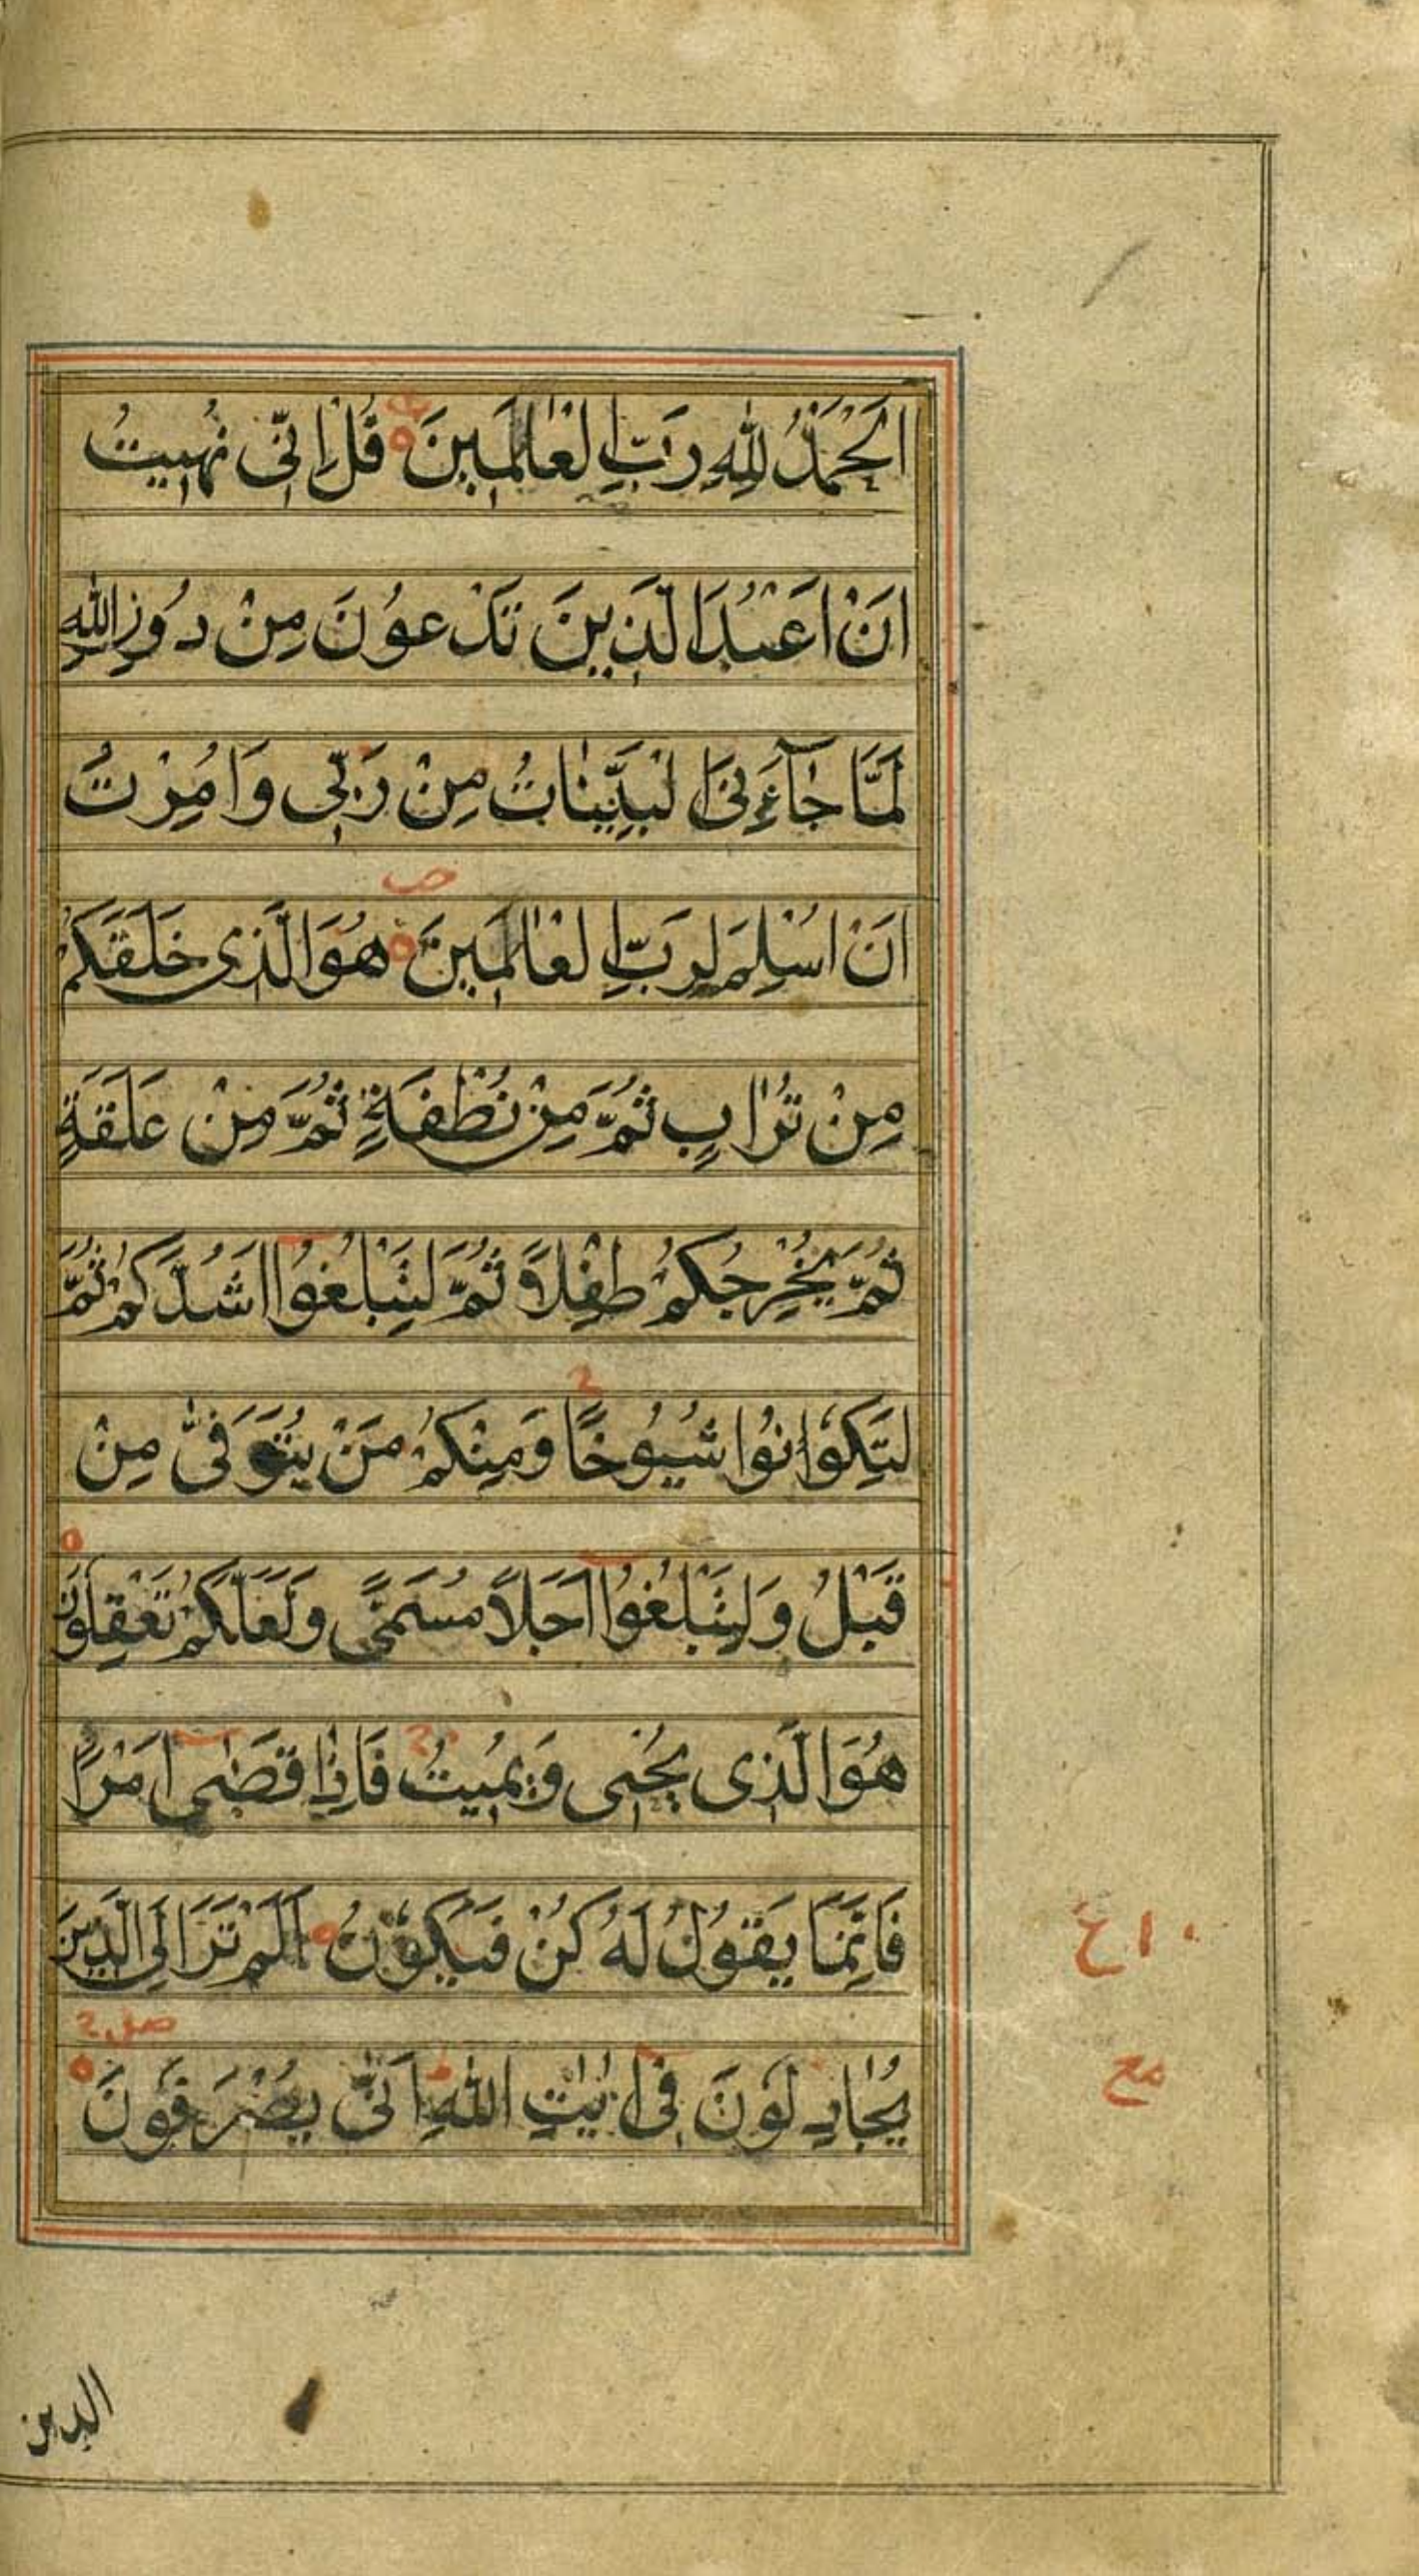 اَلْحَمْدُ لِلّٰهِ رَبِّ الْعٰالَمِينَ قُلْ اِنِّى نُهِيتُ
اَنْ اَعْبُدَ الَّذِينَ تَدْعُونَ مِنْ دُونِ اللّٰهِ
لَمَّا جٰاۤءَنِىَ الْبَيِّنٰاتُ مِنْ رَبِّى وَاُمِرْتُ
اَنْ اُسْلِمَ لِرَبِّ الْعٰالَمِينَ هُوَ الَّذِى خَلَقَكُمْ
ص
مِنْ تُرٰابٍ ثُمَّ مِنْ نُطْفَةٍ ثُمَّ مِنْ عَلَقَةٍ
ثُمَّ يُخْرِجُكُمْ طِفْلًا ثُمَّ لِتَبْلُغُوا اَشُدَّكُمْ ثُمَّ
لِتَكُوانُوا شُيُوخًا وَمِنْكُمْ مَنْ يُتَوَفّٰى مِنْ
ج
قَبْلُ وَلِتَبْلُغُوا اَجَلًا مُسَمًّى وَلَعَلَّكُمْ تَعْقِلُونَ
هُوَ الَّذِى يُحْيِى وَيُمِيتُ فَاِذٰا قَضٰى اَمْرًا
ج
فَاِنَّمَا يَقُولُ لَهُ كُنْ فَيَكُونُ اَلَمْ تَرَ اِلَى الَّذِينَ
يُجٰادِلُونَ فِى اٰيٰتِ اللّٰهِ اَنّٰى يُصْرَفُونَ
صلى ج
مع
الذين